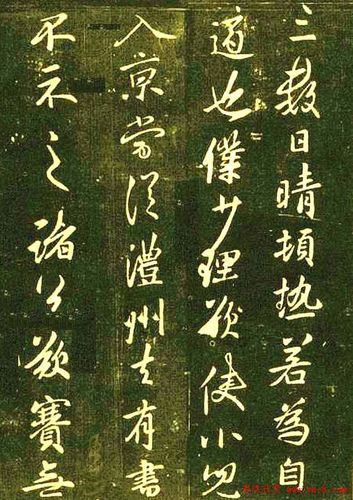 三數日晴頓熱若為自
適也僕少理欲使小兒
入京當從澧州去有書
不示之諸公欲賽無